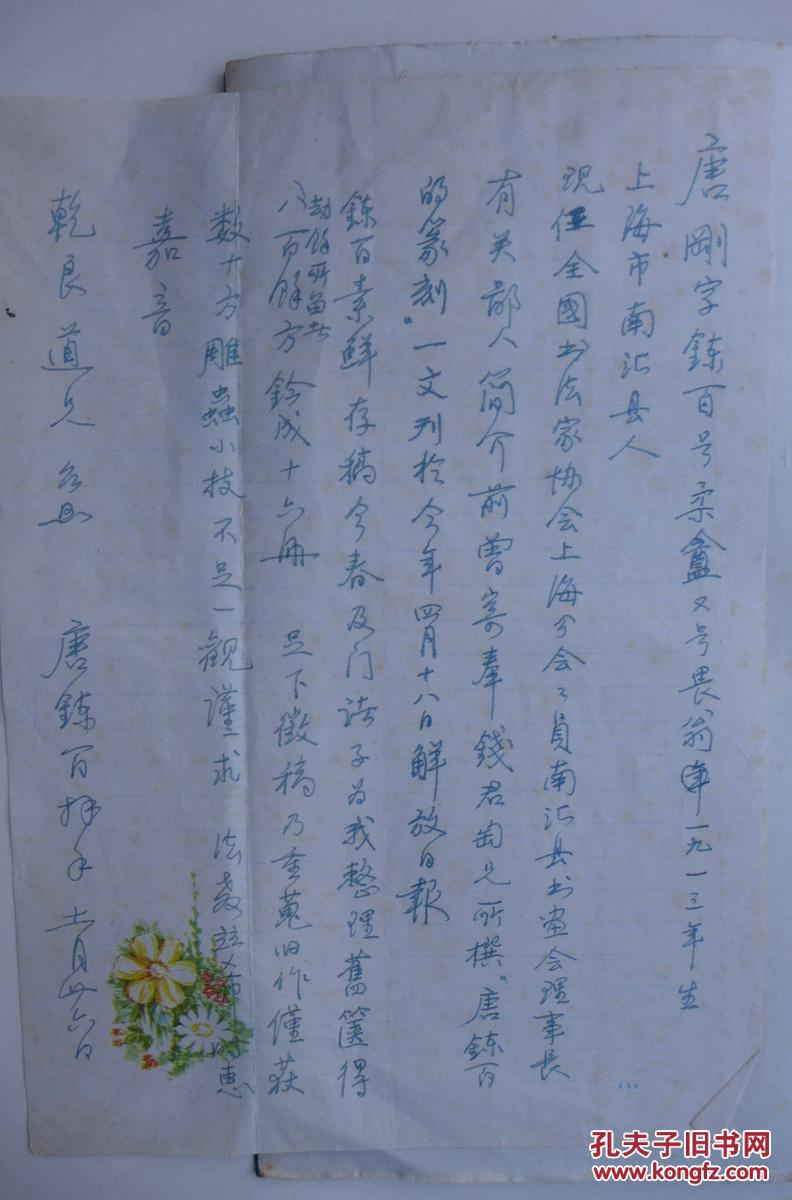 唐剛字鍊百号柔盦又号畏翁一九一三年生
上海市南汇县人
現任全國书法家协会上海分会々員南汇县书画会理事長
有关鄙人简介前曾寄奉 錢君匋兄所撰“唐鍊百
的篆刻”一文刊於今年四月十八日解放日報
鍊百素鮮存稿今春及门诸子为我整理舊箧得
劫餘所留者
八百餘方鈐成十六冊 足下徵稿乃重蒐旧作僅获
数十方雕蟲小技不足一觀謹求 法教並希時惠
嘉音
乾良道兄 台安
唐鍊百拜手 十一月廿六日
孔夫子旧书网
www.kongfz.com